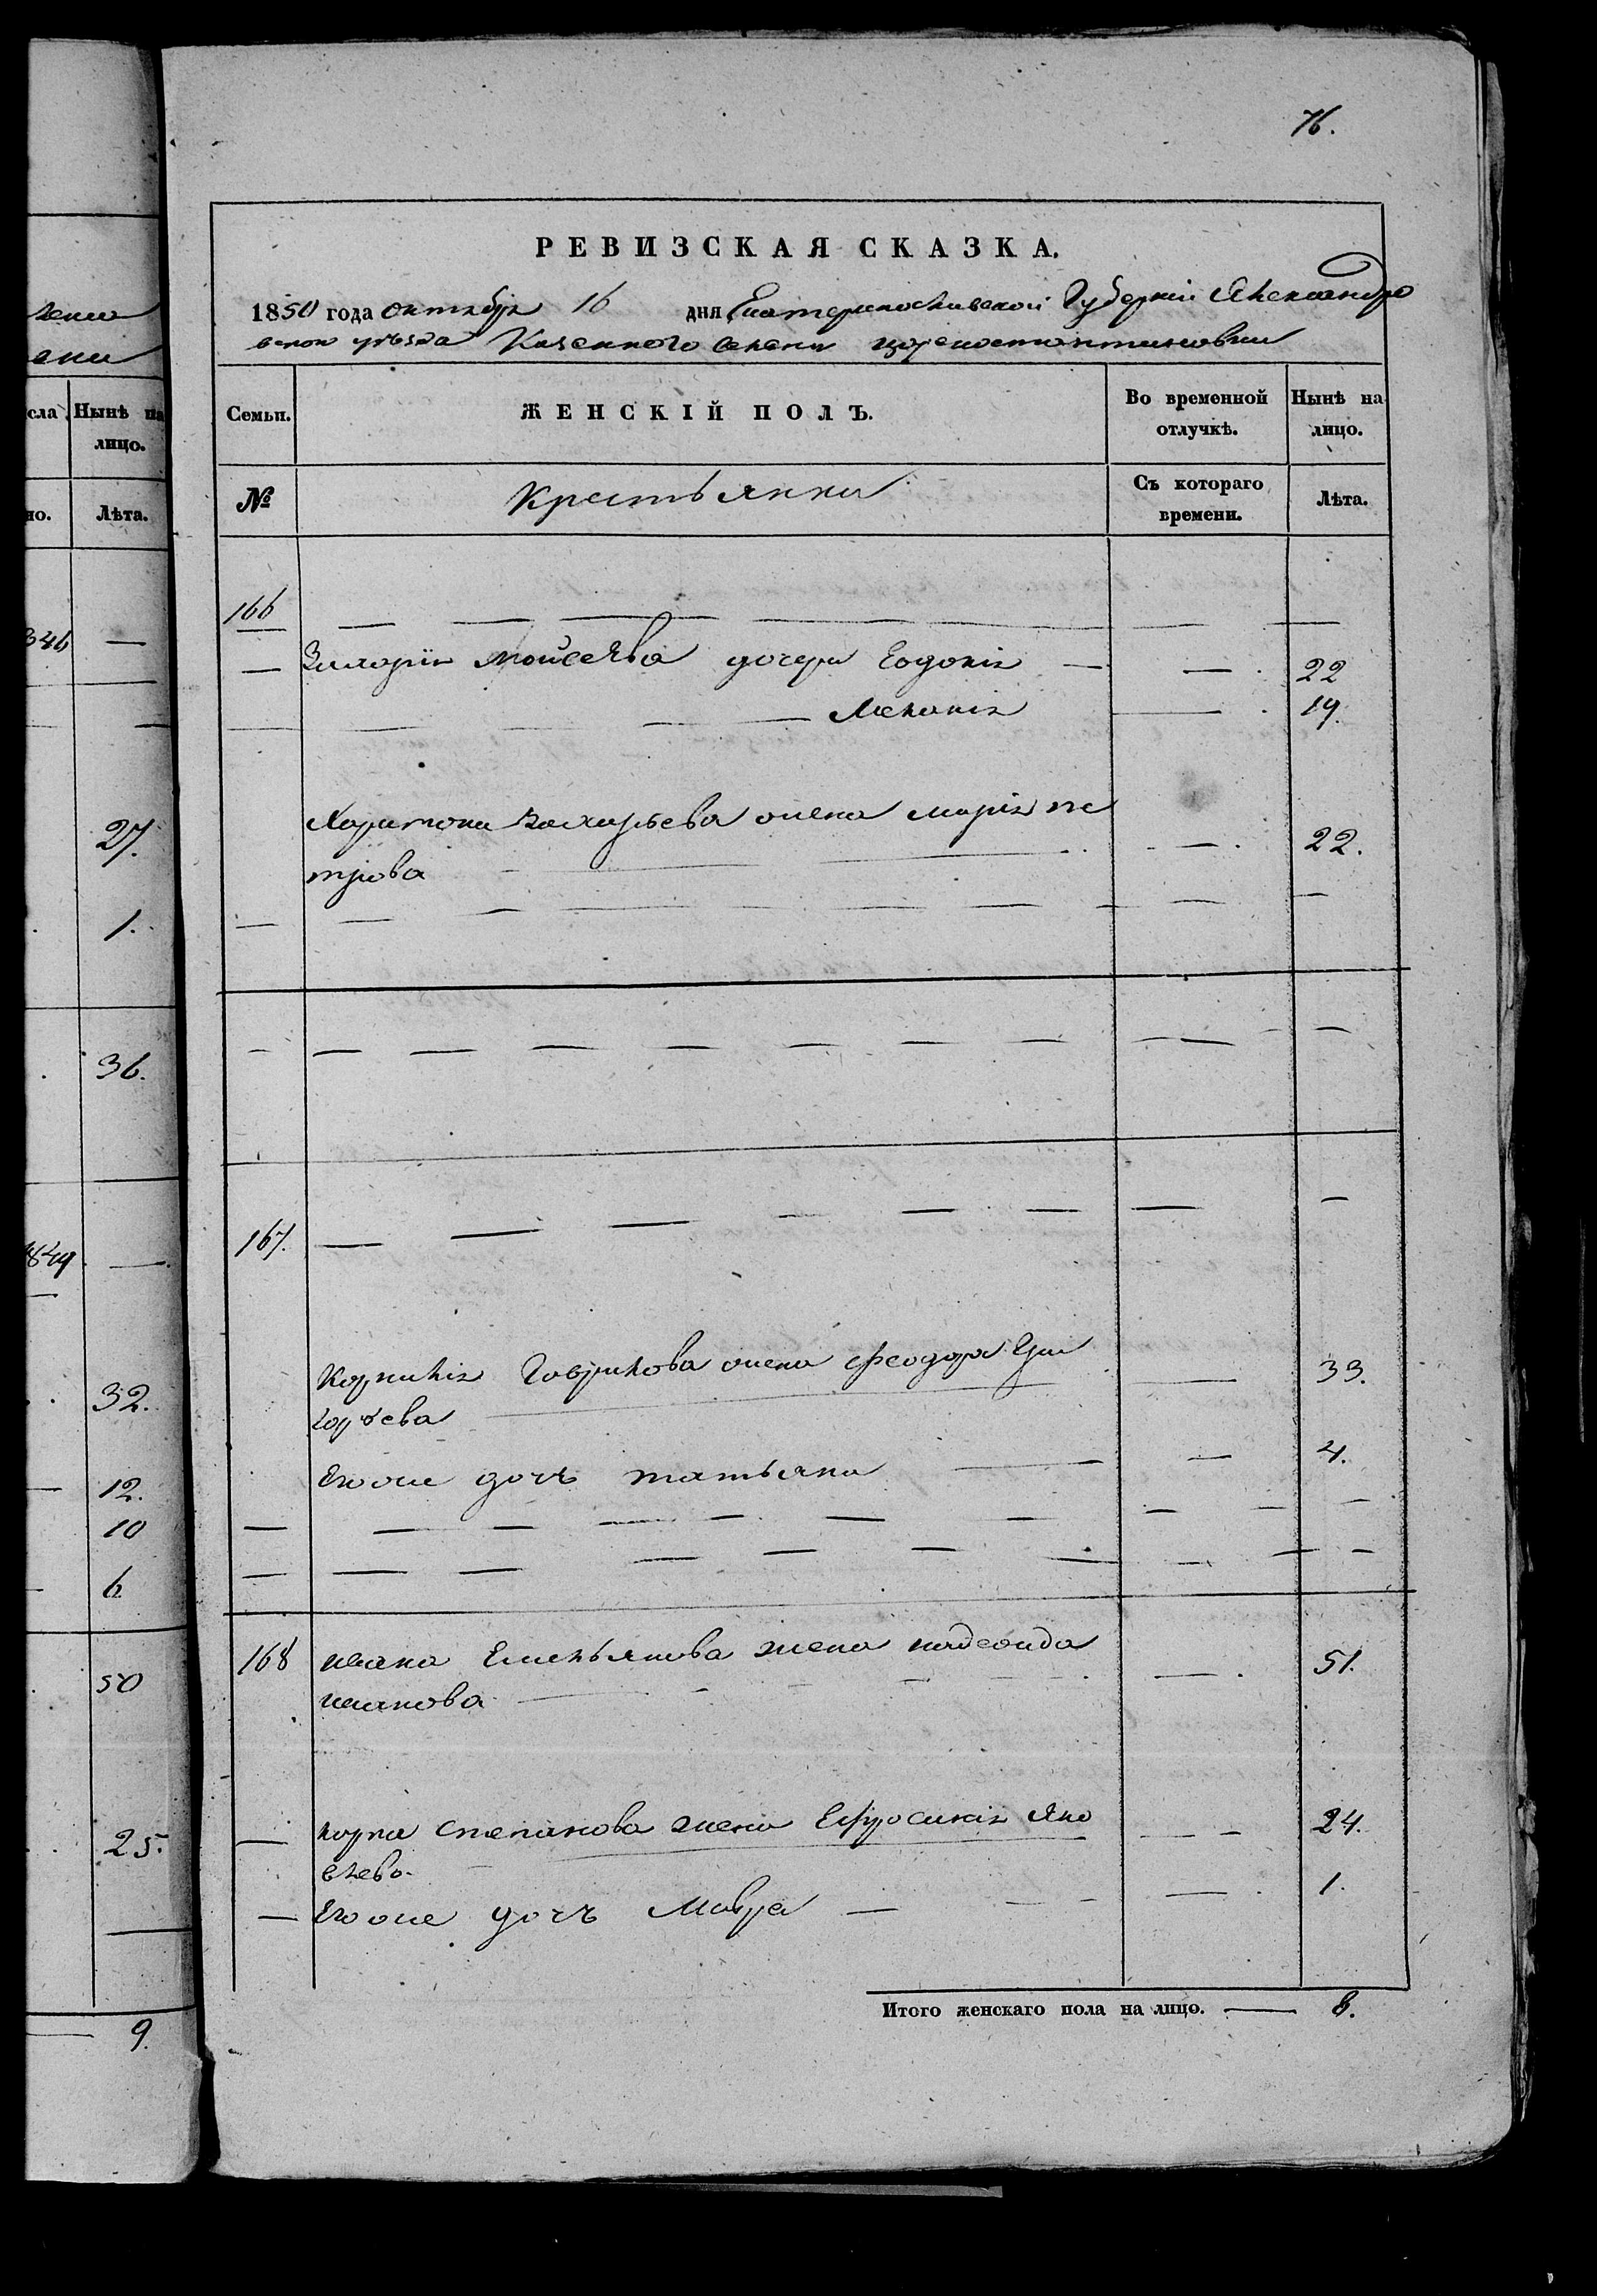 76.
РЕВИЗСКАЯ СКАЗКА.
1850 года октября 16 дня Екатеринославской Губернии Александро
вского уѣзда Казенного селени цареконстантиновки
Семьи. ЖЕНСКІЙ ПОЛЪ. Во временной отлучкѣ. Нынѣ на лицо.
№ Крестьянки Съ котораго времени. Лѣта.
166
Захарія Мойсеева дочери Евдокія 22
Меланія 19.
Харитона Захарьева жена марія пе
трова 22.
167.
Корнилія Гаврилова жена феодора Гри
горьева 33.
Его же дочь татьяна 4.
168 ивана Емельянова жена надежда 51.
иванова
карпа степанова жена Ефросинія Яко 24.
влева
Его же дочь Мавра 1.
Итого женскаго пола на лицо. 8.
сла Нынѣ на
лицо.
но. Лѣта.
346
27.
1.
36.
1849
32.
12.
10
6
50
25.
9.